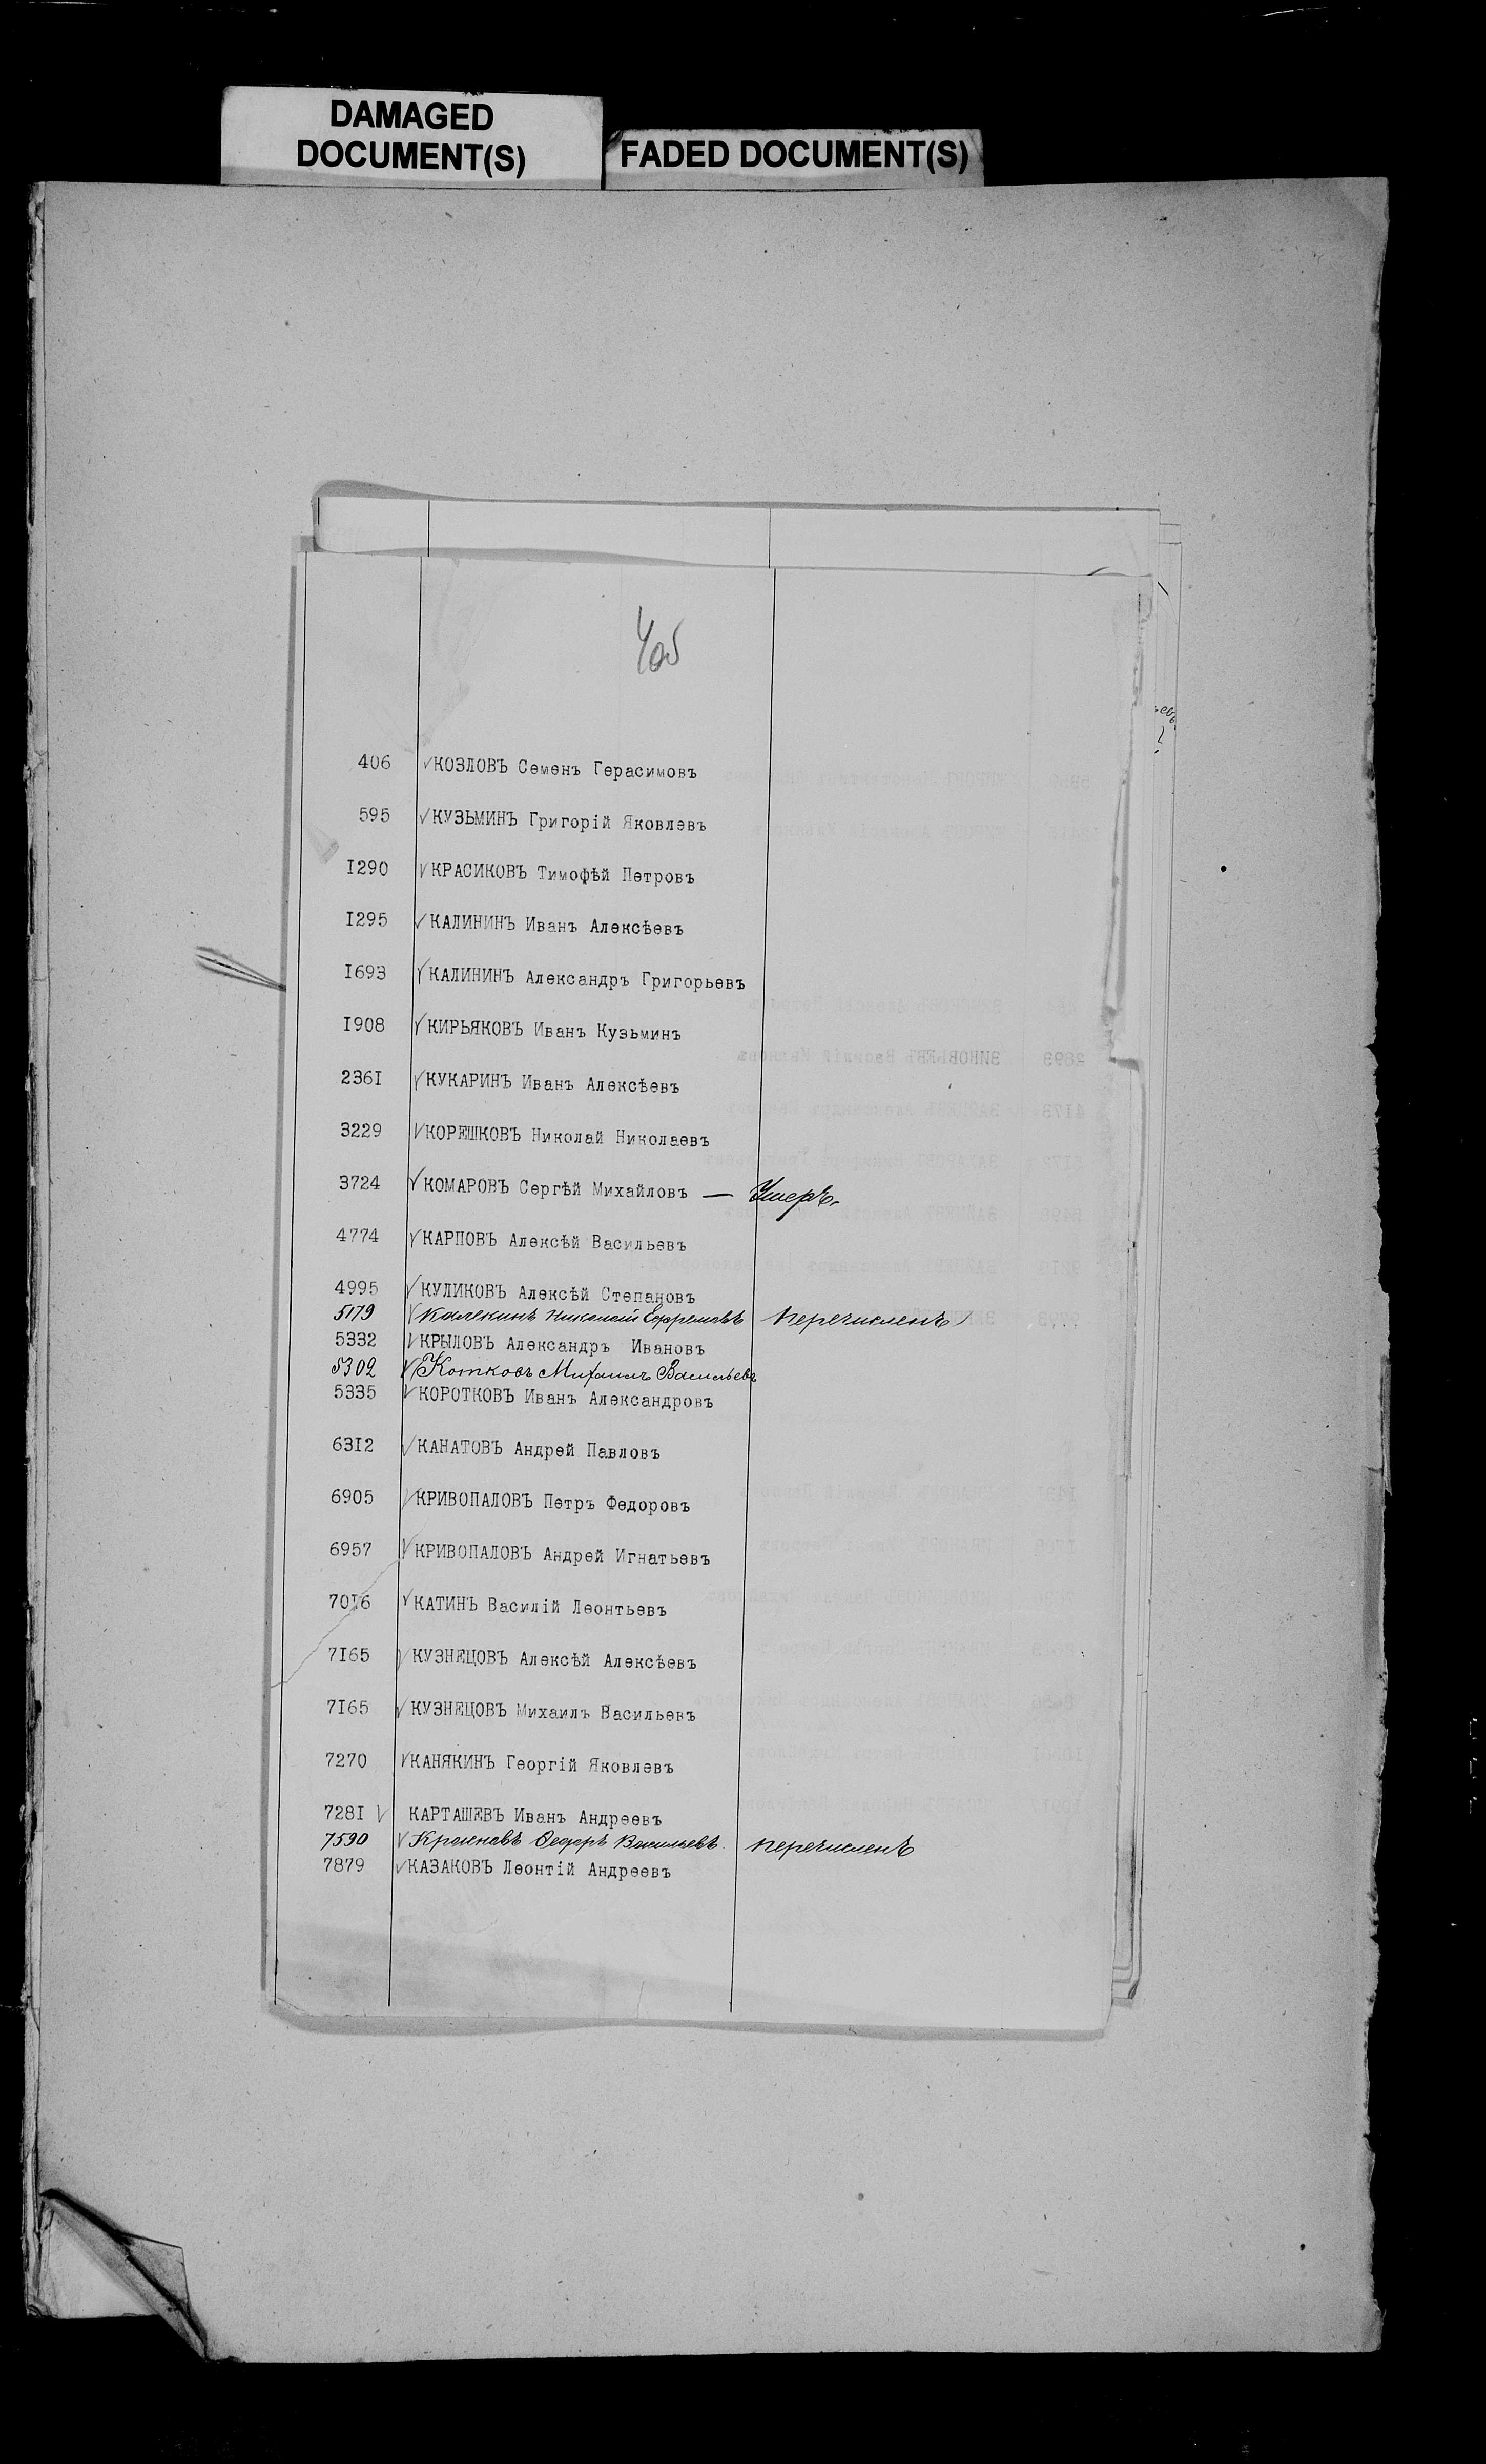 DAMAGED
DOCUMENT(S)
FADED DOCUMENT(S)
406 КОЗЛОВЪ Семенъ Герасимовъ
595 КУЗЬМИНЪ Григорій Яковлевъ
I290 КРАСИКОВЪ Тимофѣй Петровъ
I295 КАЛИНИНЪ Иванъ Алексѣевъ
I693 КАЛИНИНЪ Александръ Григорьевъ
I908 КИРЬЯКОВЪ Иванъ Кузьминъ
236I КУКАРИНЪ Иванъ Алексѣевъ
3229 КОРЕШКОВЪ Николай Николаевъ
3724 КОМАРОВЪ Сергѣй Михайловъ — Умеръ.
4774 КАРПОВЪ Алексѣй Васильевъ
4995 КУЛИКОВЪ Алексѣй Степановъ
5179 Калекинъ Николай Ефремовъ перечисленъ
5332 КРЫЛОВЪ Александръ Ивановъ
5302 Котковъ Михаилъ Васильевъ
5335 КОРОТКОВЪ Иванъ Александровъ
63I2 КАНАТОВЪ Андрей Павловъ
6905 КРИВОПАЛОВЪ Петръ Федоровъ
6957 КРИВОПАЛОВЪ Андрей Игнатьевъ
70I6 КАТИНЪ Василій Леонтьевъ
7I65 КУЗНЕЦОВЪ Алексѣй Алексѣевъ
7I65 КУЗНЕЦОВЪ Михаилъ Васильевъ
7270 КАНЯКИНЪ Георгій Яковлевъ
728I КАРТАШЕВЪ Иванъ Андреевъ
7590 Ѳедоръ Васильевъ перечисленъ
7879 КАЗАКОВЪ Леонтій Андреевъ